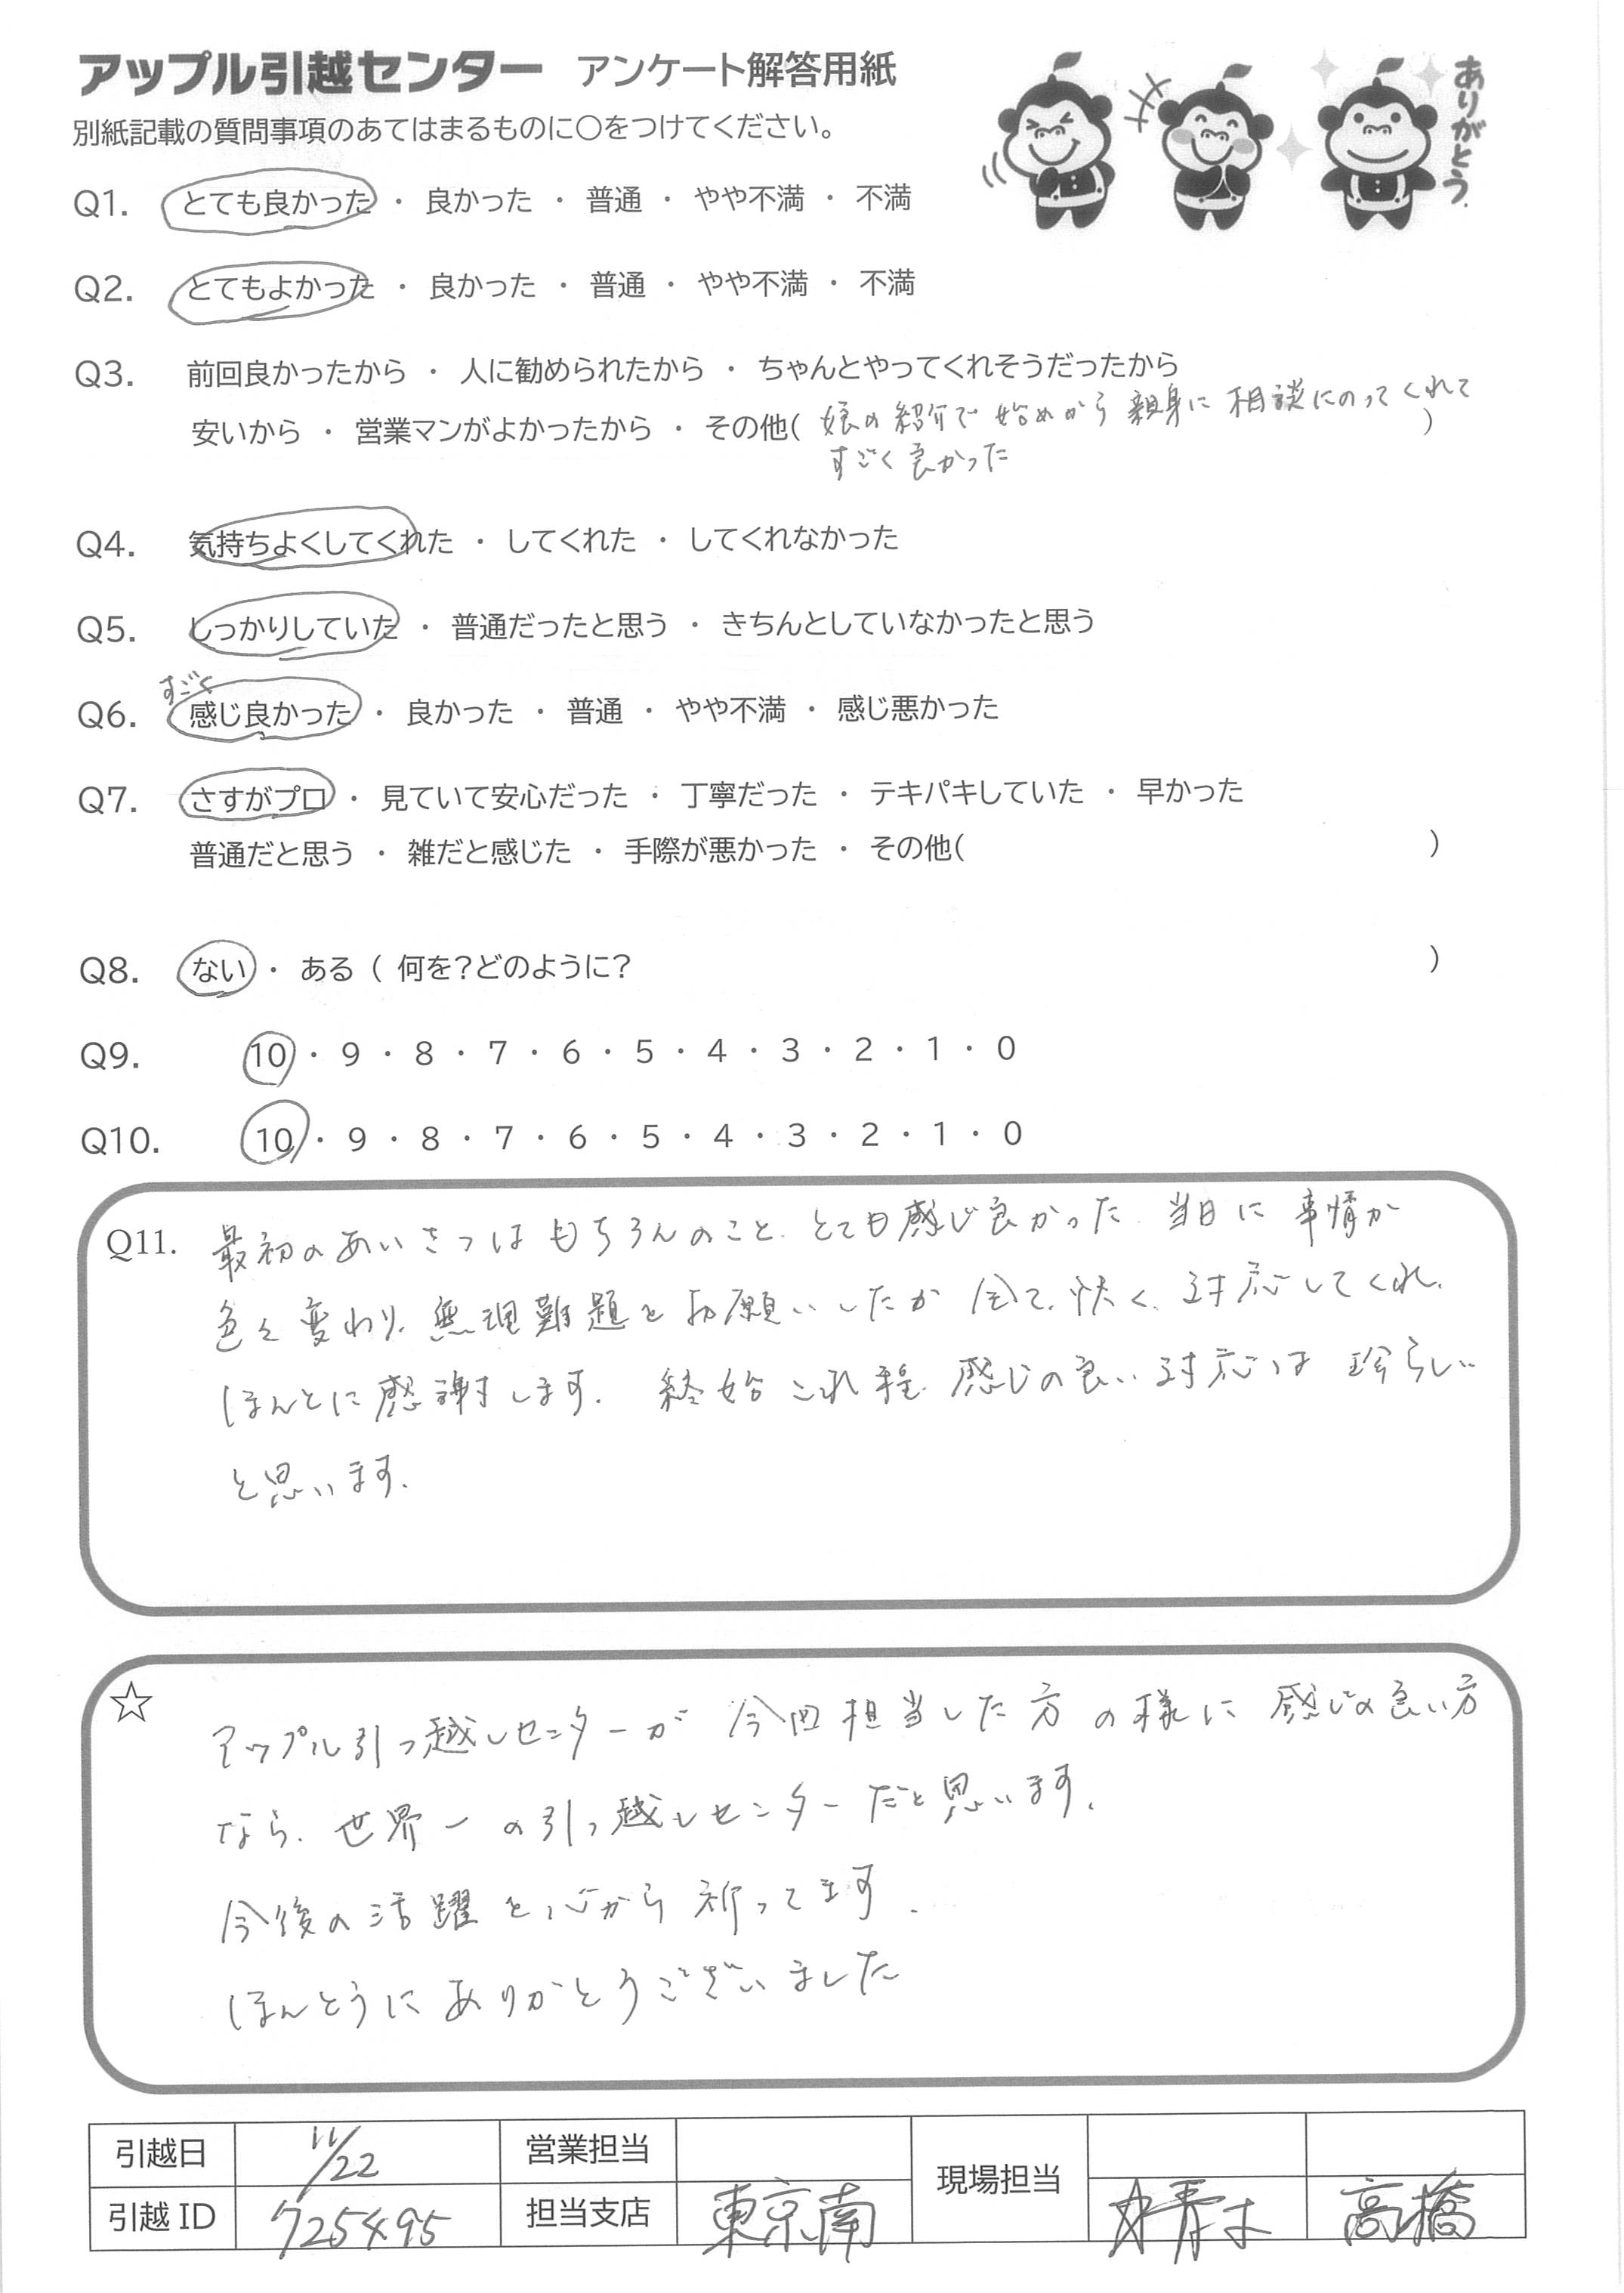 アップル引越センター アンケート解答用紙
ありがとう.
別紙記載の質問事項のあてはまるものに○をつけてください。
Q1. とても良かった ・ 良かった ・ 普通 ・ やや不満 ・ 不満
Q2. とてもよかった ・ 良かった ・ 普通 ・ やや不満 ・ 不満
Q3. 前回良かったから ・ 人に勧められたから ・ ちゃんとやってくれそうだったから
安いから ・ 営業マンがよかったから ・ その他( 娘の紹介で始めから親身に相談にのってくれて )
すごく良かった
Q4. 気持ちよくしてくれた ・ してくれた ・ してくれなかった
Q5. しっかりしていた ・ 普通だったと思う ・ きちんとしていなかったと思う
すごく
Q6. 感じ良かった ・ 良かった ・ 普通 ・ やや不満 ・ 感じ悪かった
Q7. さすがプロ ・ 見ていて安心だった ・ 丁寧だった ・ テキパキしていた ・ 早かった
普通だと思う ・ 雑だと感じた ・ 手際が悪かった ・ その他( )
Q8. ない ・ ある ( 何を?どのように? )
Q9. 10 ・ 9 ・ 8 ・ 7 ・ 6 ・ 5 ・ 4 ・ 3 ・ 2 ・ 1 ・ 0
Q10. 10 ・ 9 ・ 8 ・ 7 ・ 6 ・ 5 ・ 4 ・ 3 ・ 2 ・ 1 ・ 0
Q11. 最初のあいさつはもちろんのこと、とても感じ良かった. 当日に事情が
色々変わり、無理難題をお願いしたが全て、快く、対応してくれ、
ほんとに感謝します. 終始これ程、感じの良い対応は珍らしい
と思います.
☆ アップル引っ越しセンターが今回担当した方の様に感じの良い方
なら、世界一の引っ越しセンターだと思います.
今後の活躍を心から祈ってます.
ほんとうにありがとうございました
引越日 11/22 営業担当 現場担当
引越ID 725495 担当支店 東京南 高橋